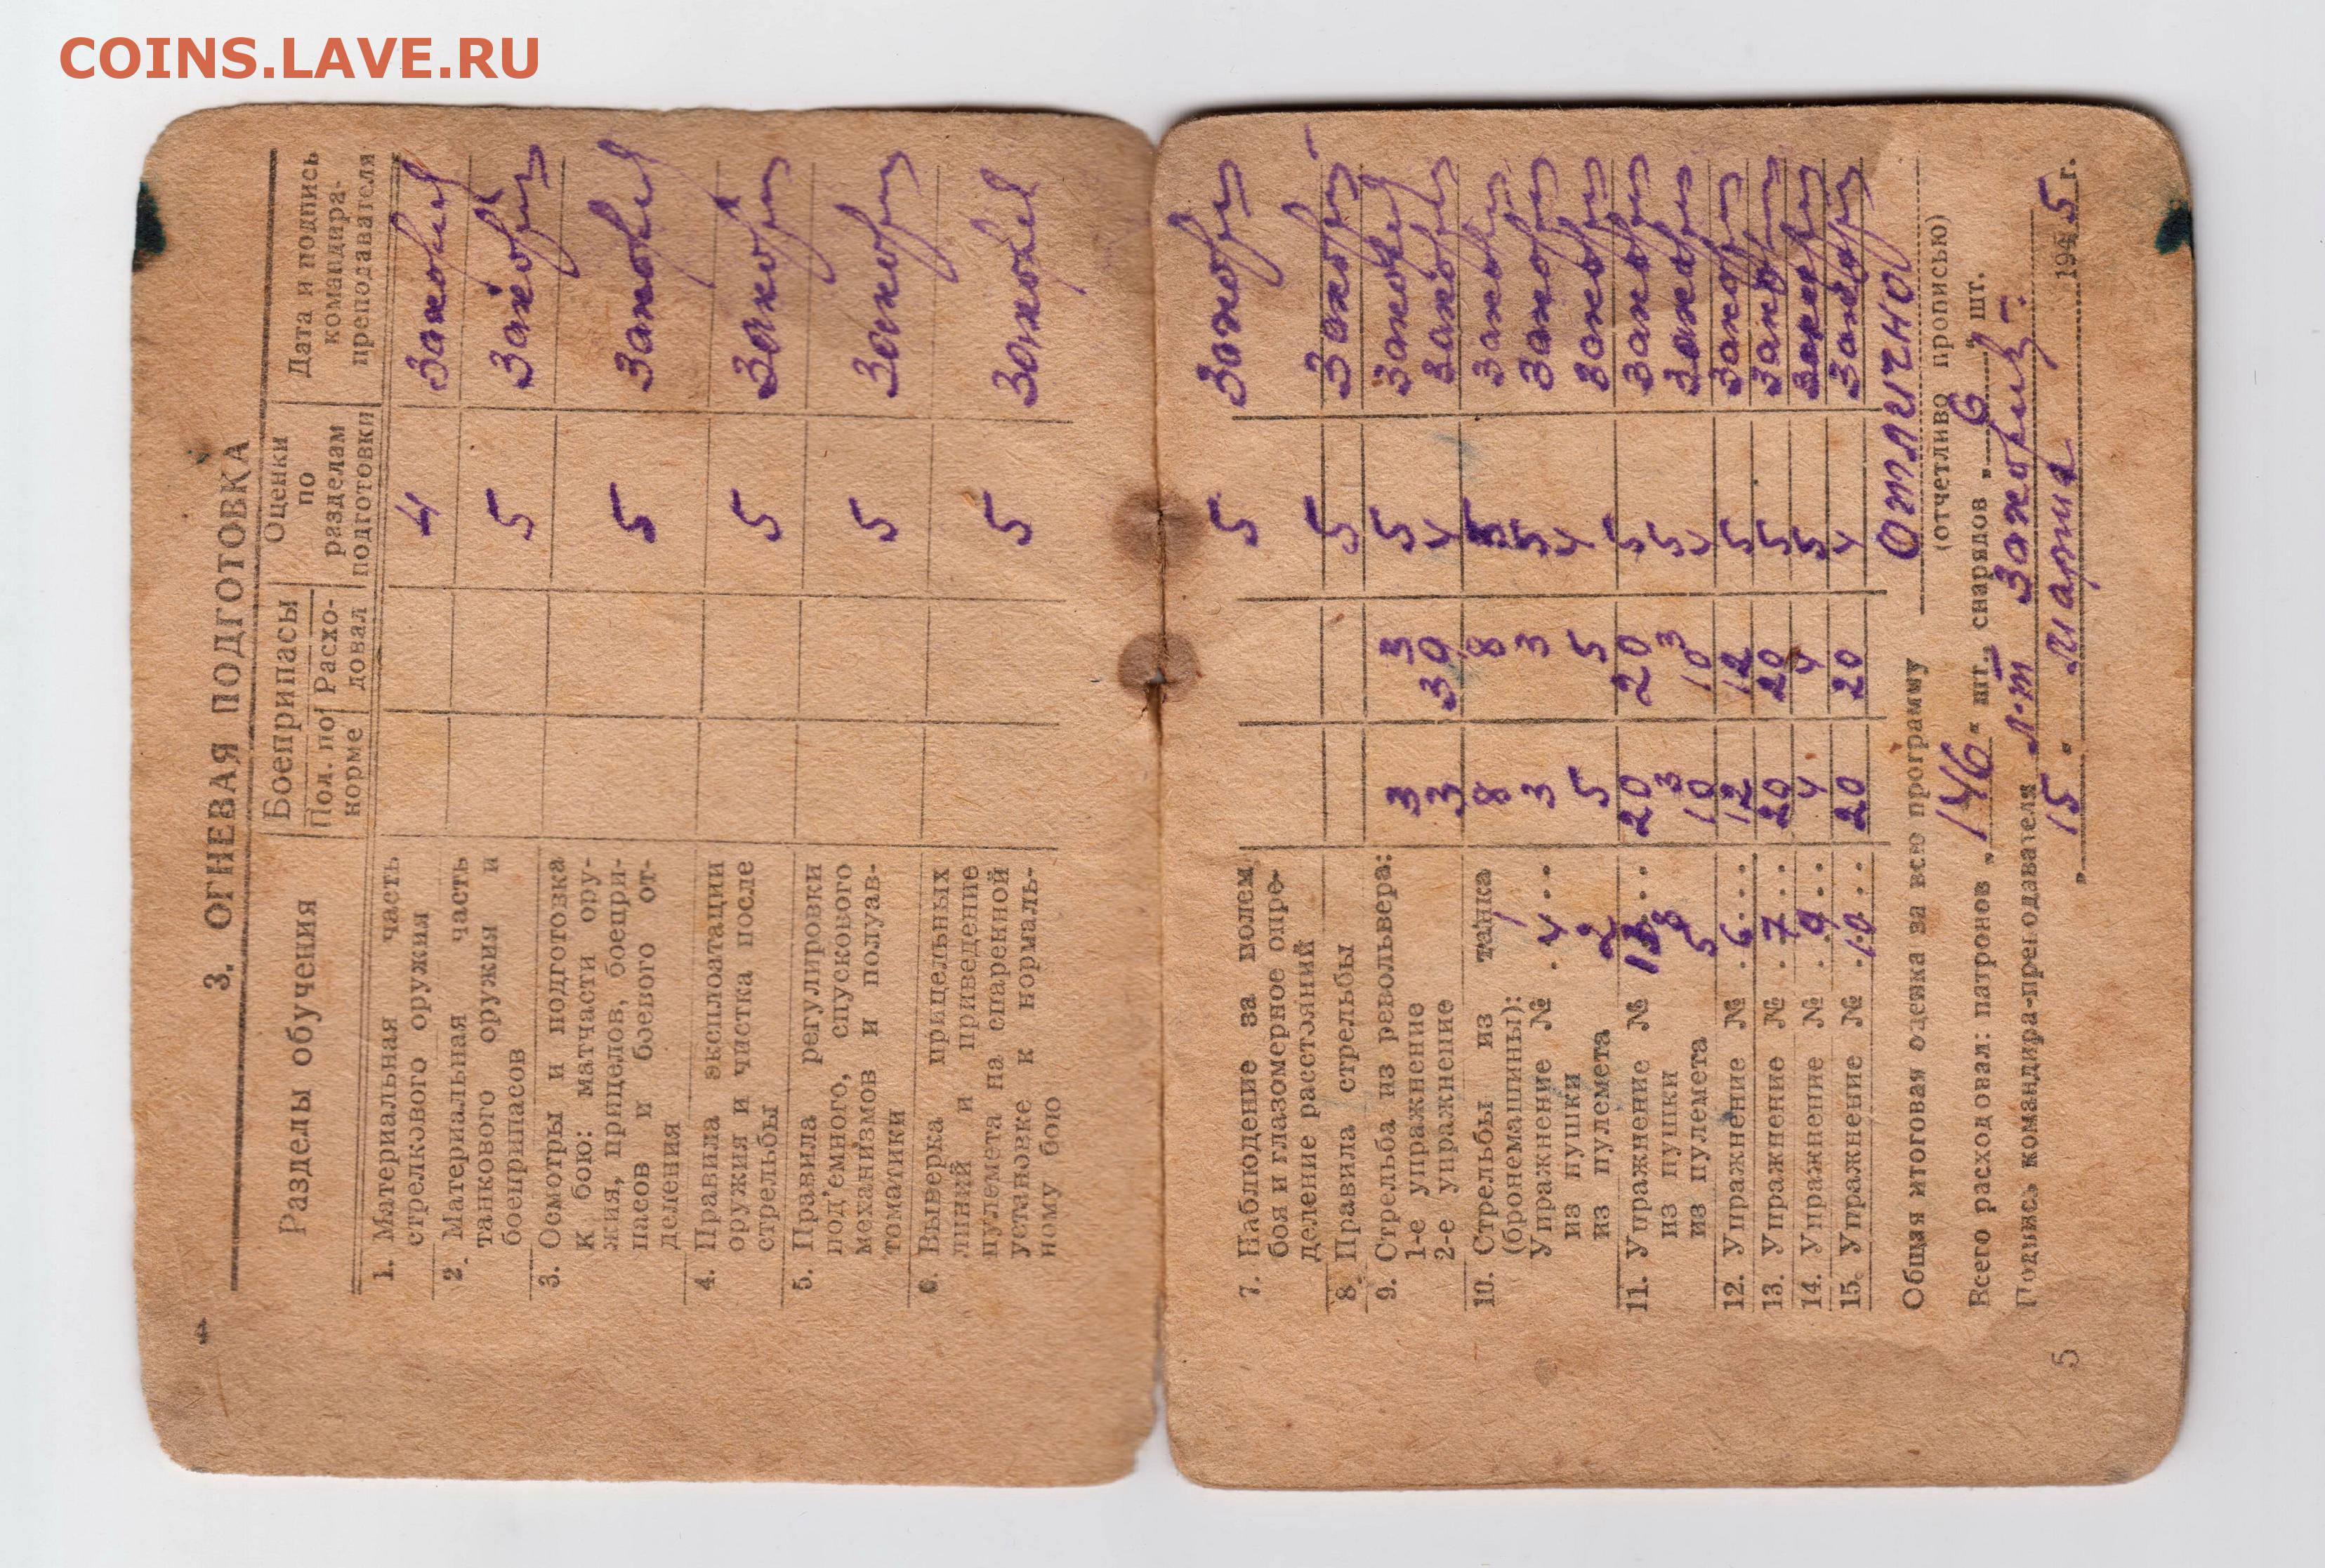 COINS.LAVE.RU
4
3. ОГНЕВАЯ ПОДГОТОВКА
Разделы обучения
Боеприпасы
Пол. по норме
Расхо-
довал
Оценки
по
разделам
подготовки
Дата и подпись
командира-
преподавателя
1. Материальная часть
стрелкового оружия
4
2. Материальная часть
танкового оружия и
боеприпасов
5
3. Осмотры и подготовка
к бою: матчасти ору-
жия, прицелов, боепри-
пасов и боевого от-
деления
5
4. Правила эксплоатации
оружия и чистка после
стрельбы
5
5. Правила регулировки
под'емного, спускового
механизмов и полуав-
томатики
5
6. Выверка прицельных
линий и приведение
пулемета на спаренной
установке к нормаль-
ному бою
5
7. Наблюдение за полем
боя и глазомерное опре-
деление расстояний
5
8. Правила стрельбы
5
9. Стрельба из револьвера:
1-е упражнение 3 3 5
2-е упражнение 3 30 4
10. Стрельбы из танка
(бронемашины): 8 8 5
Упражнение № 3 3 5
из пушки
из пулемета 5 5
11. Упражнение № 20 20 5
из пушки 3 3 5
из пулемета 10 10 4
12. Упражнение № 6 12 12 5
13. Упражнение № 7 20 20 5
14. Упражнение № 9 4 4 5
15. Упражнение № 10 20 20 4
Общая итоговая оценка за всю программу отлично
(отчетливо прописью)
Всего расходовал: патронов „146“ шт., снарядов „6“ шт.
Подпись командира-преподавателя л-т
„15“ марта 1945 г.
5